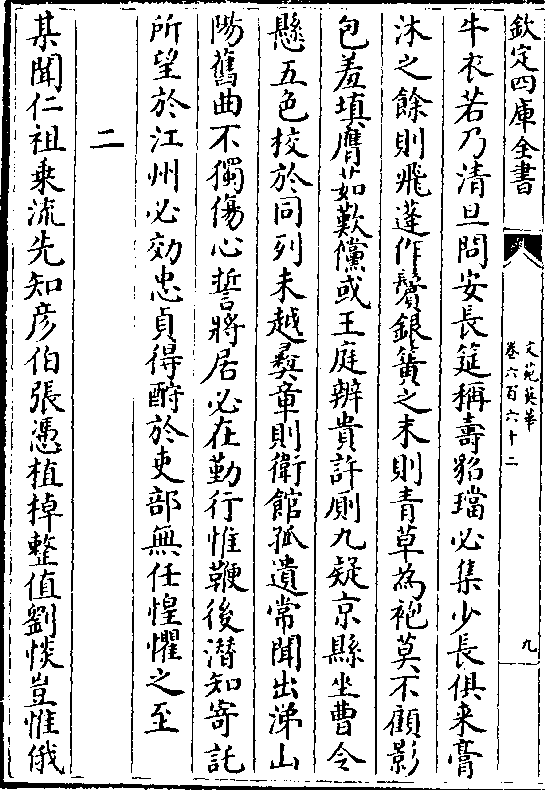 欽定四庫全書
文苑英華
卷六百六十二
九
牛衣若乃清旦問安長筵稱壽貂璫必集少長俱来膏
沐之餘則飛蓬作鬢銀簧之末則青草為袍莫不顧影
包羞填膺茹歎儻或王庭辨貴許厠九疑京縣坐曹令
懸五色挍於同列未越彜章則衛館孤遺常聞出涕山
陽舊曲不獨傷心誓將居必在勤行惟鞭後潜知寄託
所望於江州必効忠貞得酧於吏部無任惶懼之至
二
某聞仁祖乗流先知彦伯張憑植棹整值劉惔豈惟俄